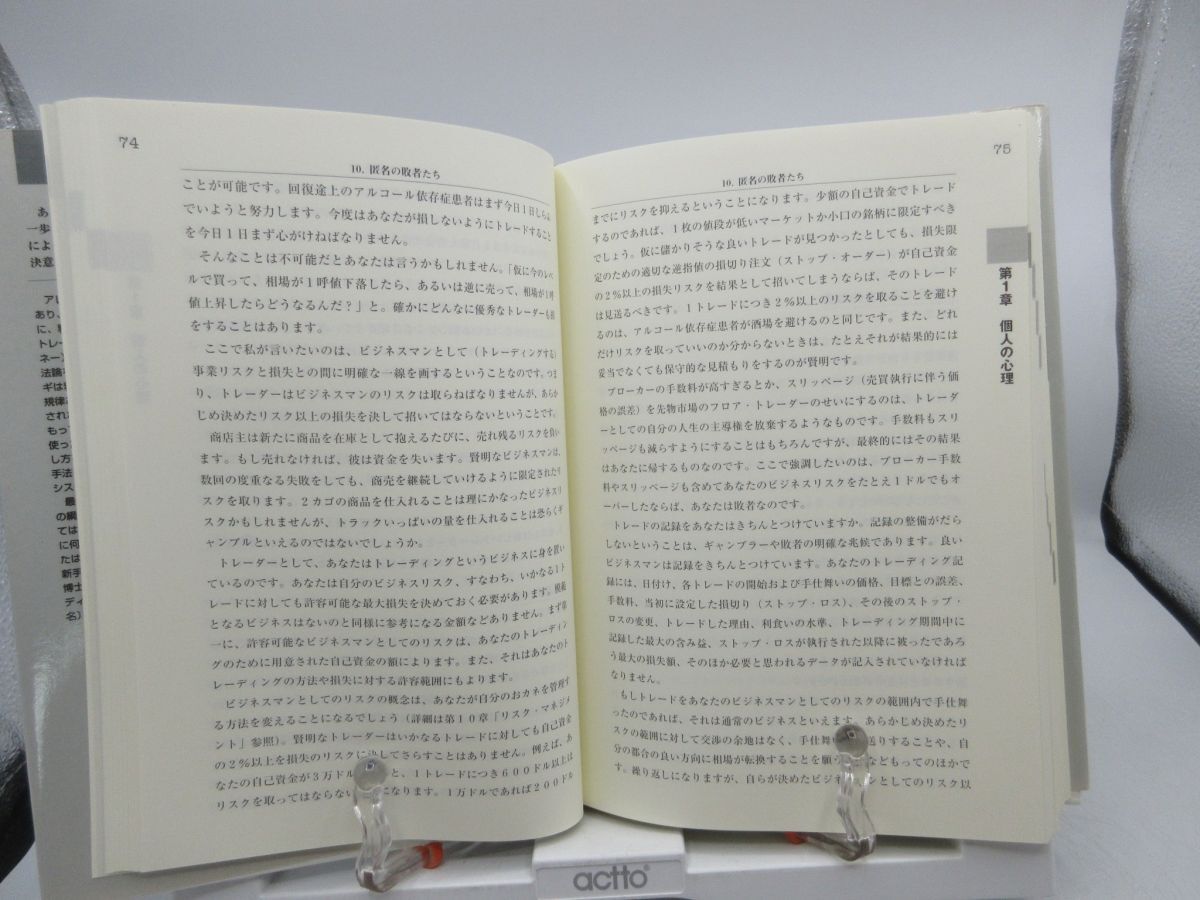 74
10. 匿名の敗者たち
ことが可能です。回復途上のアルコール依存症患者はまず今日1日しらふ
でいようと努力します。今度はあなたが損しないようにトレードすること
を今日1日まず心がけねばなりません。
そんなことは不可能だとあなたは言うかもしれません。「仮に今のレベ
ルで買って、相場が1呼値下落したら、あるいは逆に売って、相場が1呼
値上昇したらどうなるんだ?」と。確かにどんなに優秀なトレーダーも損
をすることはあります。
ここで私が言いたいのは、ビジネスマンとして(トレーディングする)
事業リスクと損失との間に明確な一線を画するということなのです。つま
り、トレーダーはビジネスマンのリスクは取らねばなりませんが、あらか
じめ決めたリスク以上の損失を決して招いてはならないということです。
商店主は新たに商品を在庫として抱えるたびに、売れ残るリスクを負い
ます。もし売れなければ、彼は資金を失います。賢明なビジネスマンは、
数回の度重なる失敗をしても、商売を継続していけるように限定されたリ
スクを取ります。2カゴの商品を仕入れることは理にかなったビジネスリ
スクかもしれませんが、トラックいっぱいの量を仕入れることは恐らくギ
ャンブルといえるのではないでしょうか。
トレーダーとして、あなたはトレーディングというビジネスに身を置い
ているのです。あなたは自分のビジネスリスク、すなわち、いかなる1ト
レードに対しても許容可能な最大損失を決めておく必要があります。模範
となるビジネスはないのと同様に参考になる金額などありません。まず第
一に、許容可能なビジネスマンとしてのリスクは、あなたのトレーディン
グのために用意された自己資金の額によります。また、それはあなたのト
レーディングの方法や損失に対する許容範囲にもよります。
ビジネスマンとしてのリスクの概念は、あなたが自分のおカネを管理す
る方法を変えることになるでしょう(詳細は第10章「リスク・マネジメ
ント」参照)。賢明なトレーダーはいかなるトレードに対しても自己資金
の2%以上を損失のリスクに決してさらすことはありません。例えば、あ
なたの自己資金が3万ドル と、1トレードにつき600ドル以上は
リスクを取ってはならない になります。1万ドルであれば200ドル
75
10. 匿名の敗者たち
までにリスクを抑えるということになります。少額の自己資金でトレード
するのであれば、1枚の値段が低いマーケットか小口の銘柄に限定すべき
でしょう。仮に儲かりそうな良いトレードが見つかったとしても、損失限
定のための適切な逆指値の損切り注文(ストップ・オーダー)が自己資金
の2%以上の損失リスクを結果として招いてしまうならば、そのトレード
は見送るべきです。1トレードにつき2%以上のリスクを取ることを避け
るのは、アルコール依存症患者が酒場を避けるのと同じです。また、どれ
だけリスクを取っていいのか分からないときは、たとえそれが結果的には
妥当でなくても保守的な見積もりをするのが賢明です。
ブローカーの手数料が高すぎるとか、スリッページ(売買執行に伴う価
格の誤差)を先物市場のフロア・トレーダーのせいにするのは、トレーダ
ーとしての自分の人生の主導権を放棄するようなものです。手数料もスリ
ッページも減らすようにすることはもちろんですが、最終的にはその結果
はあなたに帰するものなのです。ここで強調したいのは、ブローカー手数
料やスリッページも含めてあなたのビジネスリスクをたとえ1ドルでもオ
ーバーしたならば、あなたは敗者なのです。
トレードの記録をあなたはきちんとつけていますか。記録の整備がだら
しないということは、ギャンブラーや敗者の明確な兆候であります。良い
ビジネスマンは記録をきちんとつけています。あなたのトレーディング記
録には、日付け、各トレードの開始および手仕舞いの価格、目標との誤差、
手数料、当初に設定した損切り(ストップ・ロス)、その後のストップ・
ロスの変更、トレードした理由、利食いの水準、トレーディング期間中に
記録した最大の含み益、ストップ・ロスが執行された以降に被ったであろ
う最大の損失額、そのほか必要と思われるデータが記入されていなければ
なりません。
もしトレードをあなたのビジネスマンとしてのリスクの範囲内で手仕舞
ったのであれば、それは通常のビジネスといえます。あらかじめ決めたリ
スクの範囲に対して交渉の余地はなく、手仕舞 送りすることや、自
分の都合の良い方向に相場が転換することを願う などもってのほかで
す。繰り返しになりますが、自らが決めたビジネスマンとしてのリスク以
第1章 個人の心理
actto